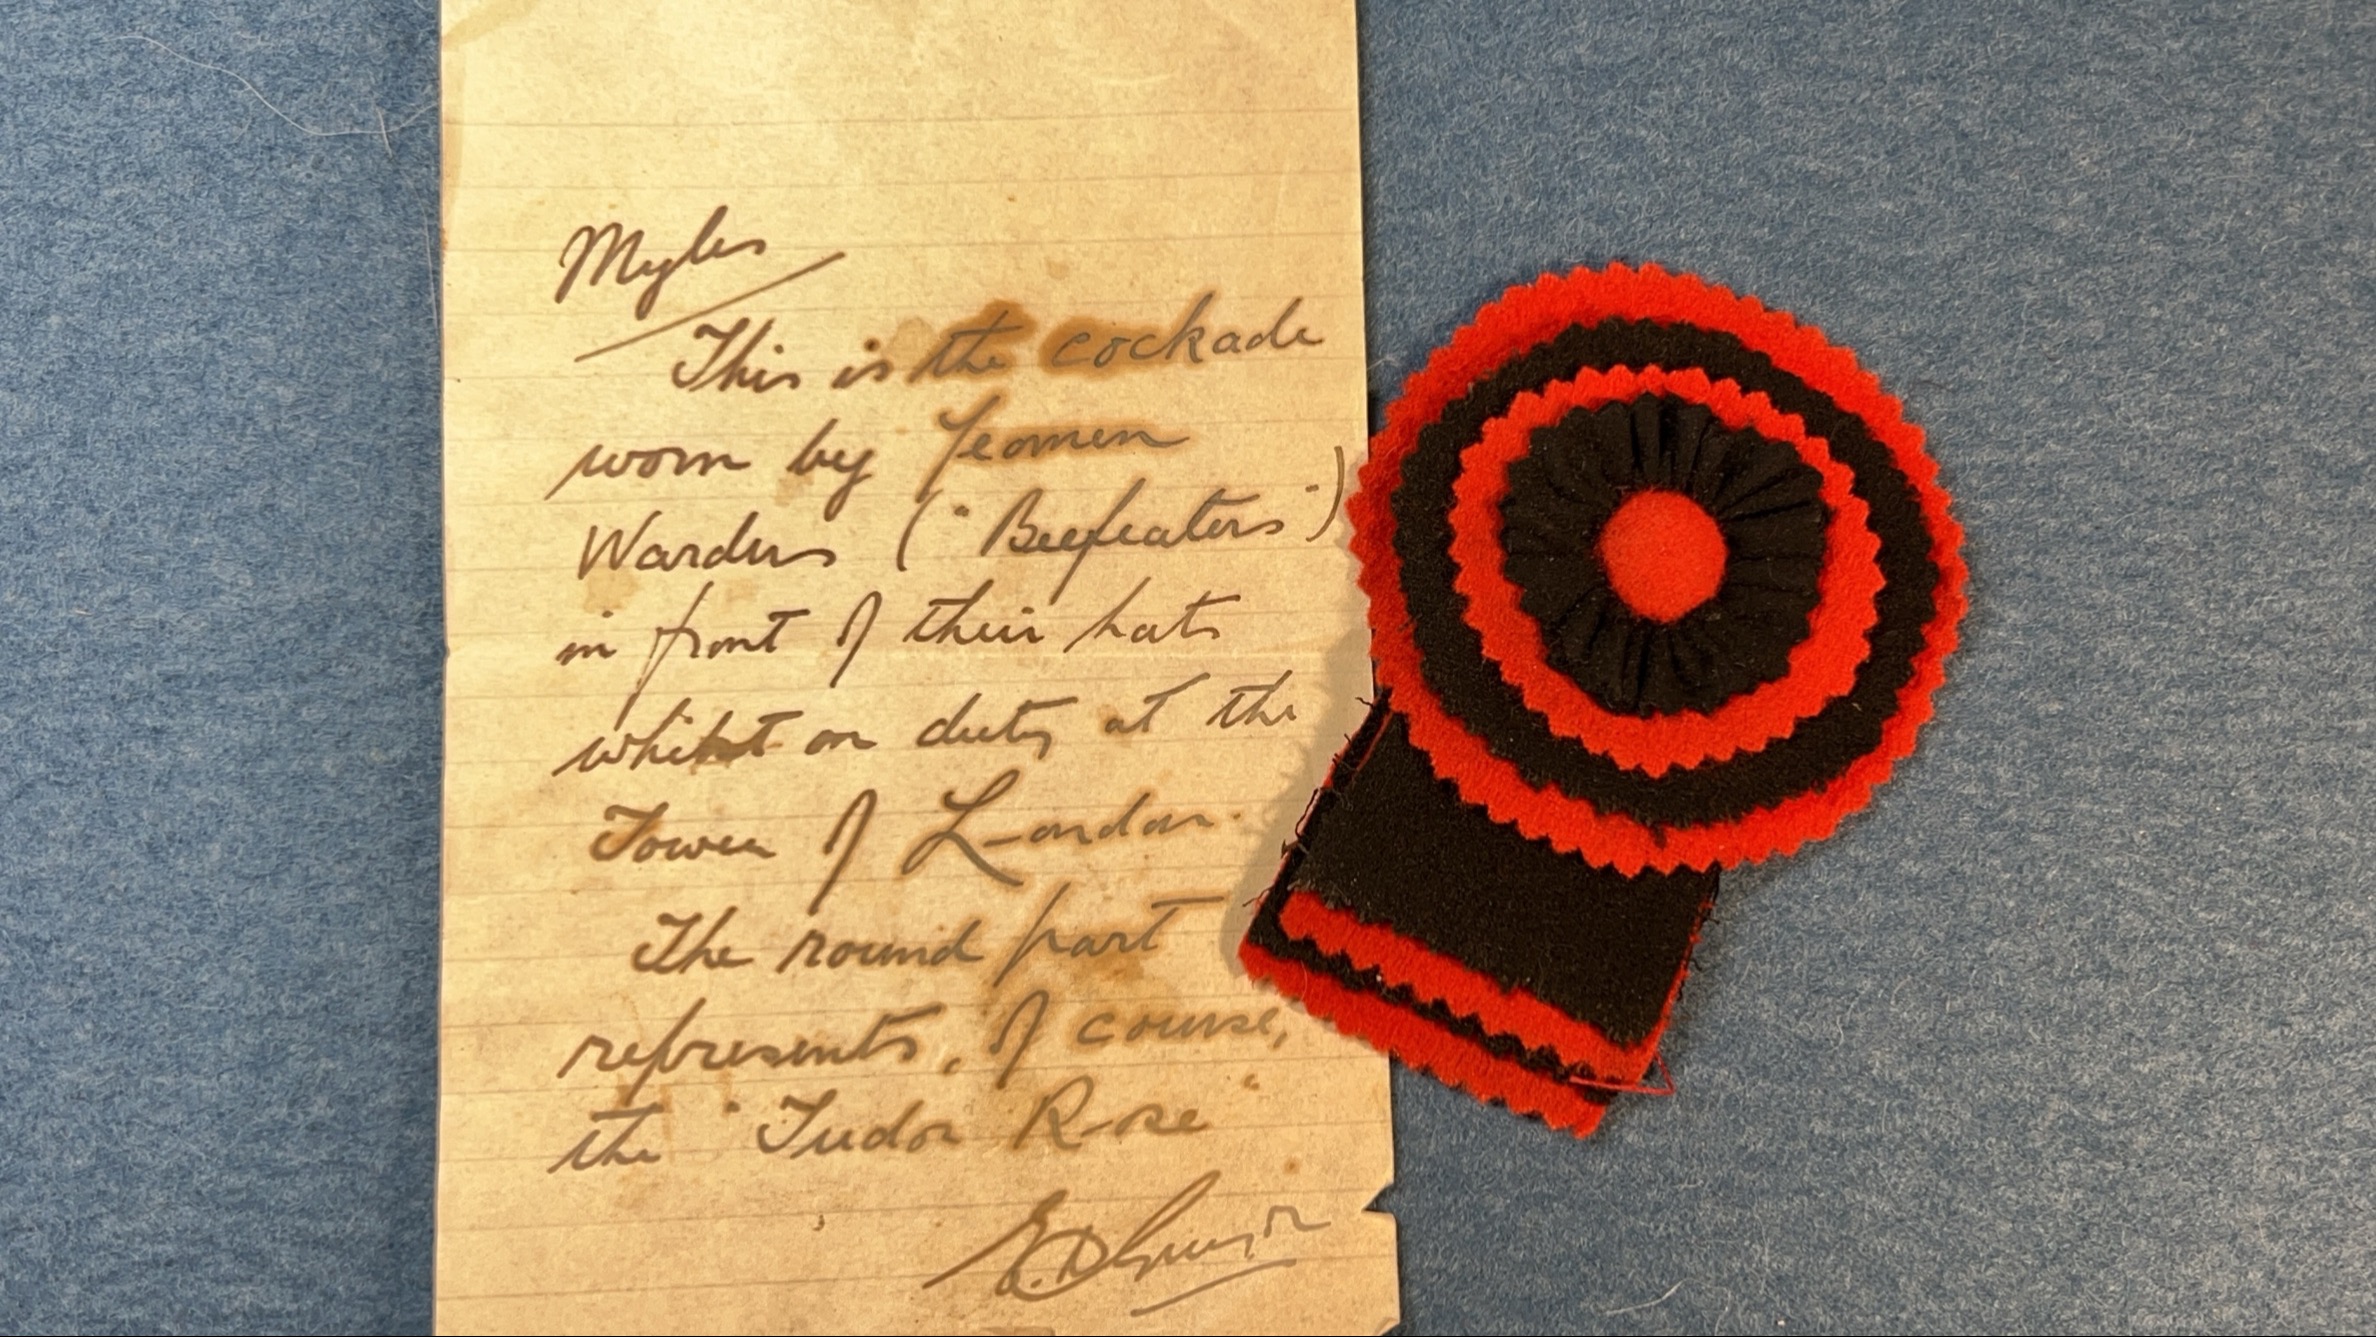 Myles
This is the cockade
worn by Yeomen
Warders ("Beefeaters")
in front of their hats
whilst on duty at the
Tower of London.
The round part
represents, of course,
the "Tudor Rose"
E.D.